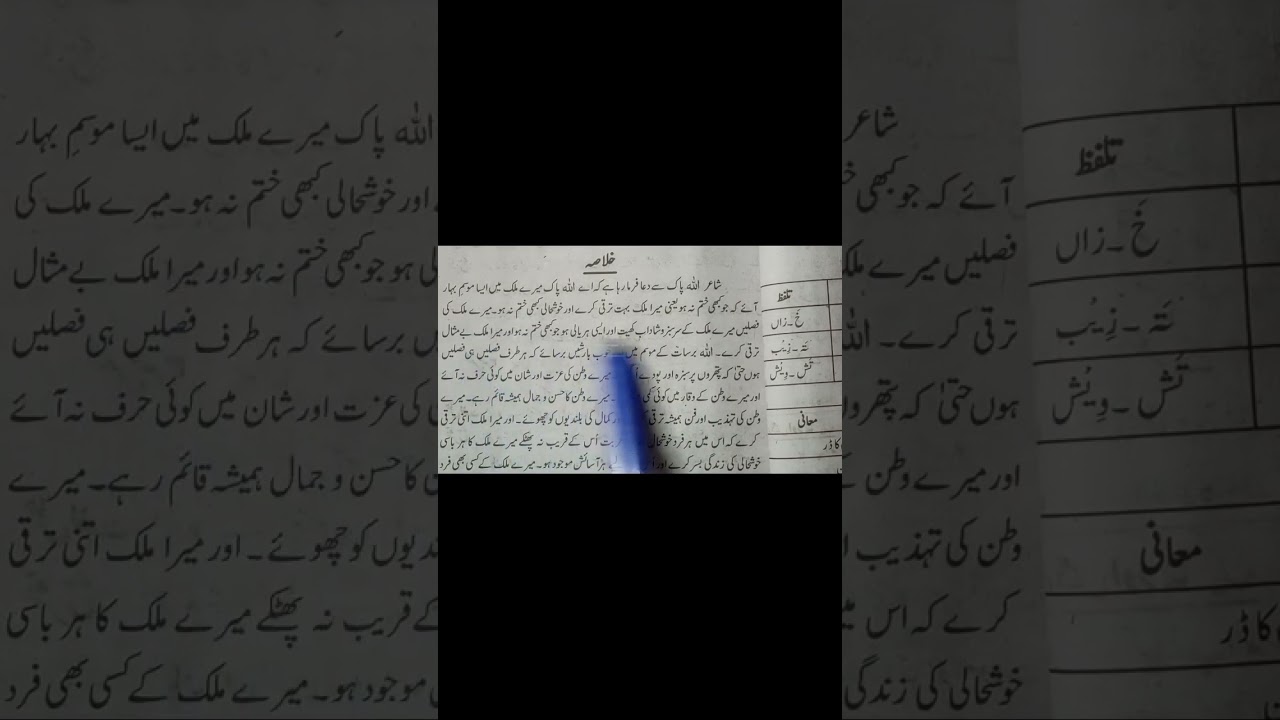 خلاصہ
شاعر اللہ پاک سے دعا فرما رہا ہے کہ اے اللہ پاک میرے ملک میں ایسا موسمِ بہار
آئے کہ جو کبھی ختم نہ ہو یعنی میرا ملک بہت ترقی کرے اور خوشحالی کبھی ختم نہ ہو۔ میرے ملک کی
فصلیں میرے ملک کے سرسبز و شاداب کھیت اور ایسی ہریالی ہو جو کبھی ختم نہ ہو اور میرا ملک بے مثال
ترقی کرے۔ اللہ برسات کے موسم میں بارشیں برسائے کہ ہر طرف فصلیں ہی فصلیں
ہوں حتیٰ کہ پتھروں پر سبزہ اور پودے میرے وطن کی عزت اور شان میں کوئی حرف نہ آئے
اور میرے وطن کے وقار میں کوئی میرے وطن کا حسن و جمال ہمیشہ قائم رہے۔ میرے
وطن کی تہذیب اور فن ہمیشہ ترقی کمال کی بلندیوں کو چھوئے۔ اور میرا ملک اتنی ترقی
کرے کہ اس میں ہر فرد خوشحال اُس کے قریب نہ پھٹکے میرے ملک کا ہر باسی
خوشحالی کی زندگی بسر کرے اور ہر آسائش موجود ہو۔ میرے ملک کے کسی بھی فرد
تلفظ
خَ۔زاں
تَہ۔زِیُب
تَش۔وِیُش
معانی
کا ڈر